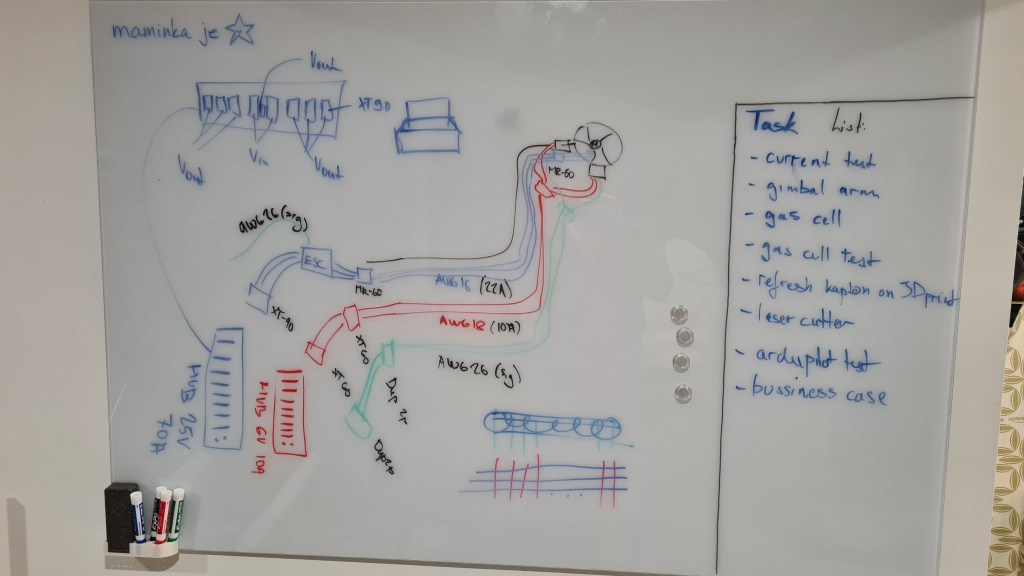 maminka je
Vout
XT90
Vout
Vin
Vout
MR-60
AWG26 (sig)
ESC
MR-60
AWG16 (22A)
XT-90
AWG18 (10A)
XT60
XT60
AWG26 (sig)
HUB 25V
70A
HUB 6V 10A
Task List:
- current test
- gimbal arm
- gas cell
- gas cell test
- refresh kapton on 3Dprint
- laser cutter
- ardupilot test
- bussiness case